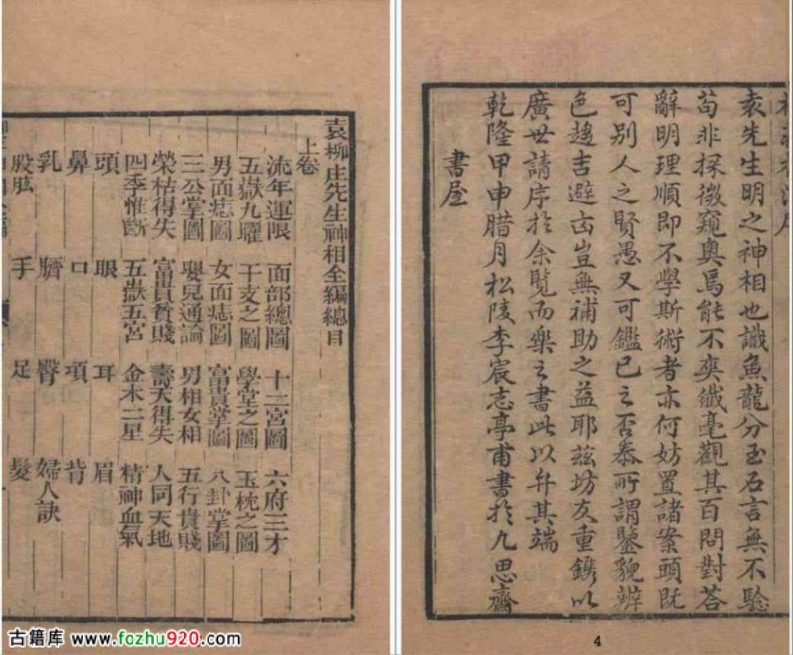 袁先生明之神相也識魚龍分玉石言無不驗
苟非探微窺奧焉能不爽纖毫觀其百問對答
辭明理順即不學斯術者亦何妨置諸案頭既
可別人之賢愚又可鑑己之否泰所謂鑒貌辨
色趨吉避凶豈無補助之益耶茲坊友重鐫以
廣世請序於余覽而樂之書此以弁其端
乾隆甲申腊月松陵李宸志亭甫書於九思齋
書屋
4
袁柳庄先生神相全編總目
上卷
流年運限 面部總圖 十二宮圖 六府三才
五嶽九曜 干支之圖 學堂之圖 玉枕之圖
男面痣圖 女面痣圖 富貴掌圖 八卦掌圖
三公掌圖 嬰兒通論 男相女相 五行貴賤
榮枯得失 富貴貧賤 壽夭得失 人同天地
四季惟斷 五嶽五宮 金木二星 精神血氣
頭 眼 耳 眉
鼻 口 項 背
乳 臍 臀 婦人訣
股肱 手 足 髮
古籍库 www.fozhu920.com